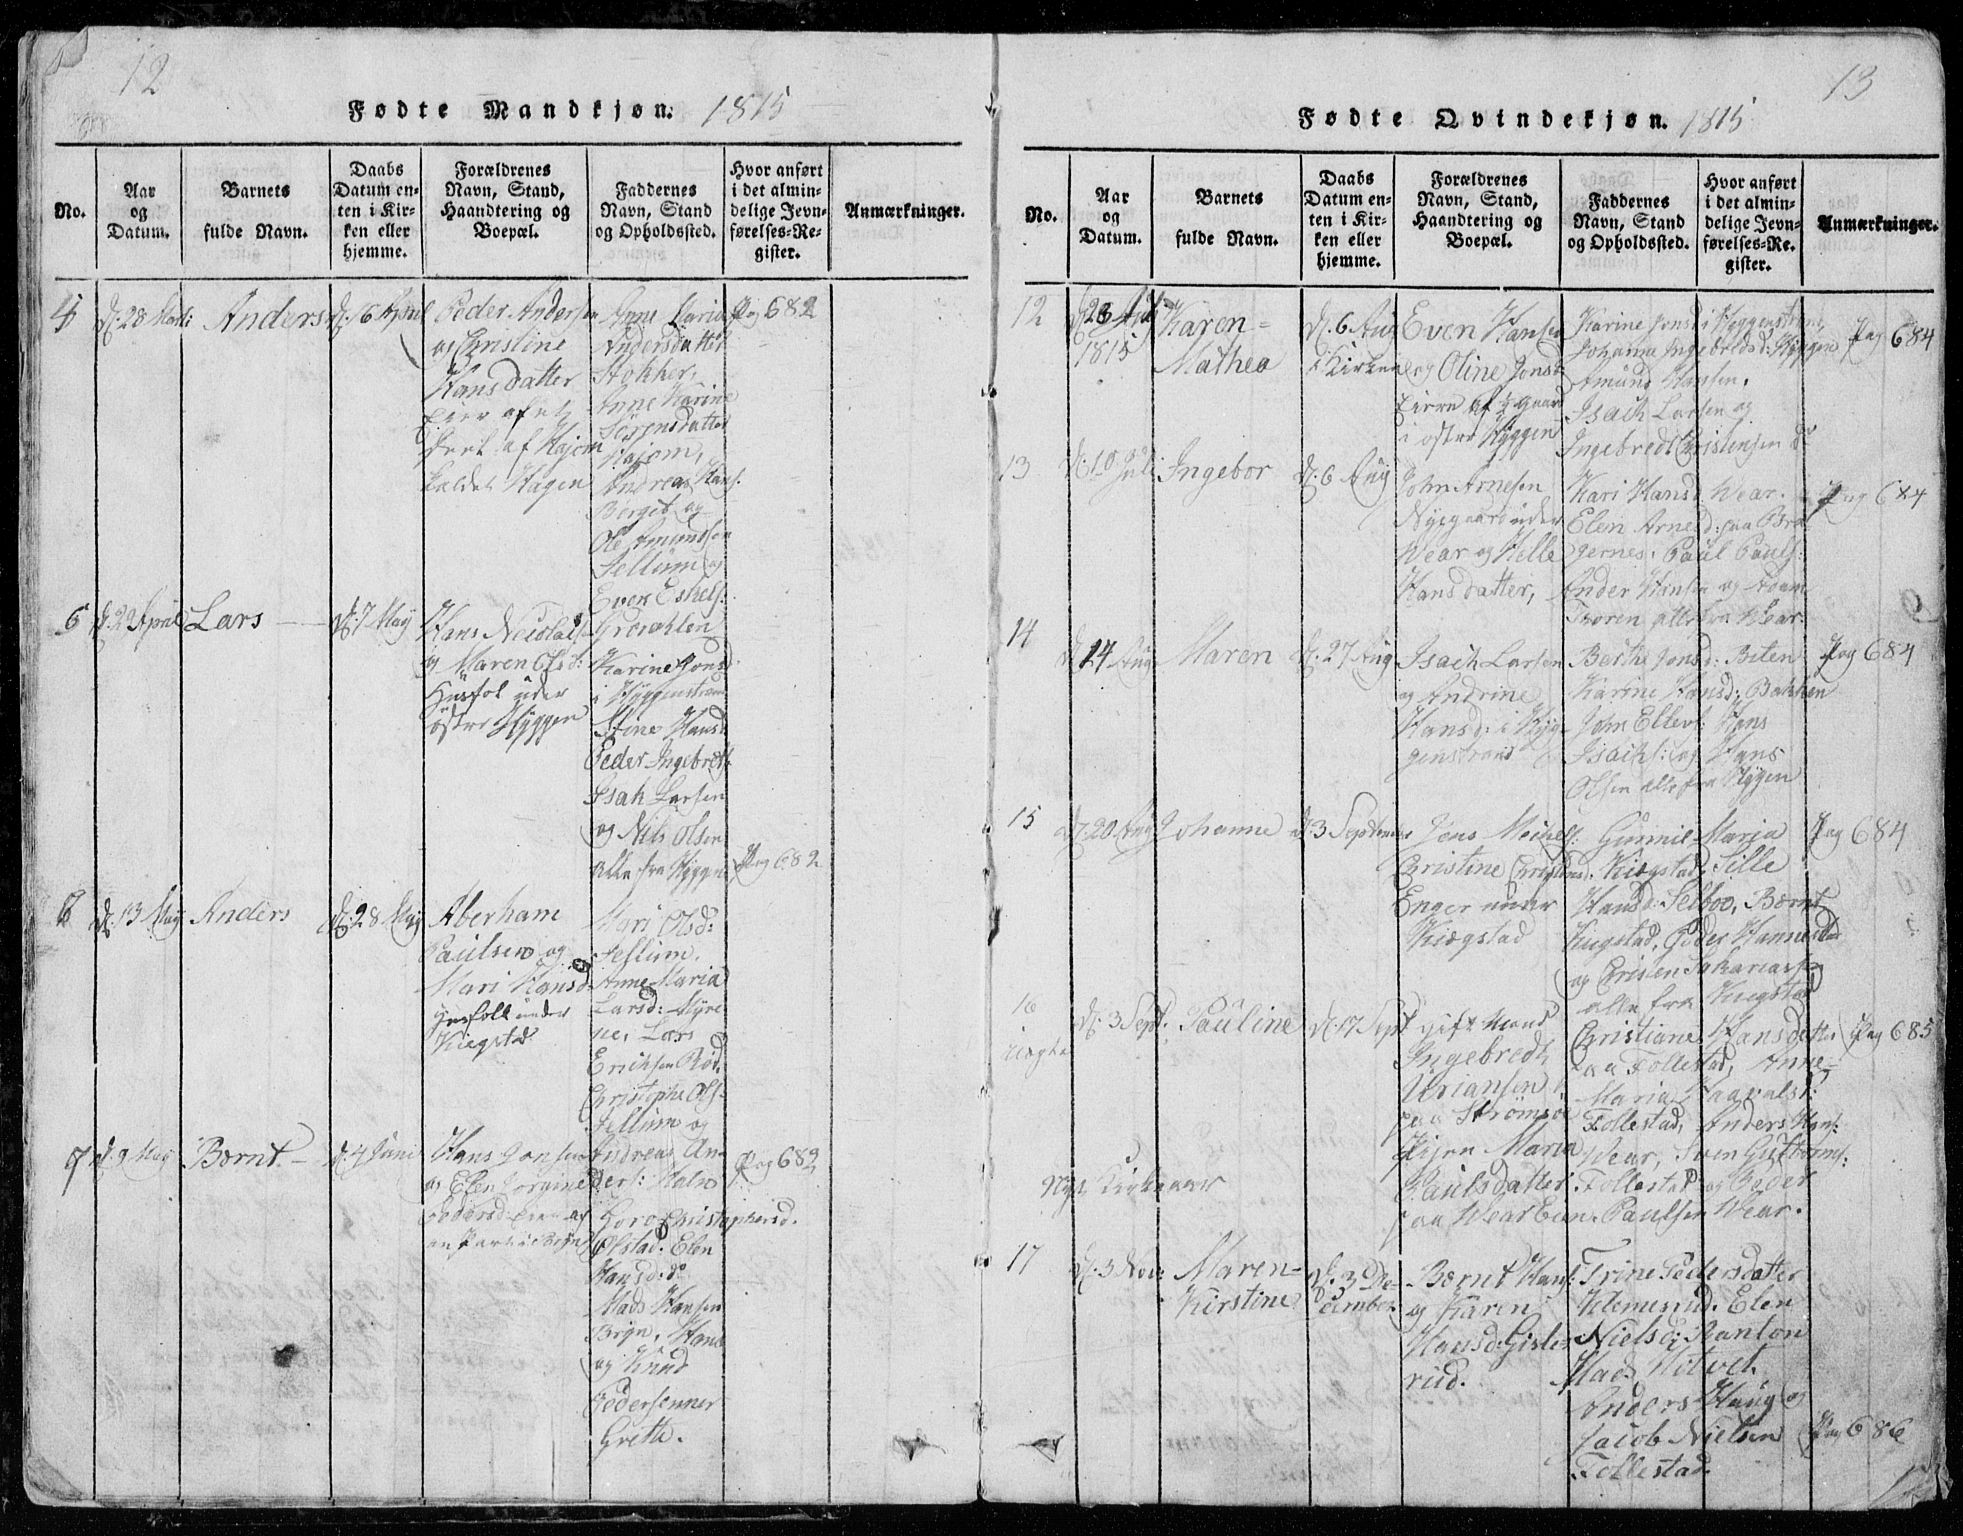 12
Fødte Mandkjøn. 1815
No.
Aar
og
Datum.
Barnets
fulde Navn.
Daabs
Datum en-
ten i Kir-
ken eller
hjemme.
Forældrenes
Navn, Stand,
Haandtering og
Boepæl.
Faddernes
Navn, Stand
og Opholdssted.
Hvor anført
i det almin-
delige Jevn-
førelses-Re-
gister.
Anmærkninger.
4
d: 28 Marti
Anders
d: 16 April
Peder Andersen
og Christine
Hansdatter
Eier af et
Part af Hajem
kaldet Hagen
Anne Marie
Andersdatter
Stokker,
Anne Karine
Sörensdatter
Hajom,
Andreas Hans:
Berget og
Ole Amundsen
Jellum og
Even Eskels:
Grorahlen
Pag 682
5
d: 22 April
Lars
d: 7 May
Hans Nicolais:
og Maren Olsd:
Husfol under
östre Hyggen
Karine Jonsd
i Hyggenstran
Stine Hansd
Peder Ingebrets:
Isak Larsen
og Nils Olsen
alle fra Hyggen
Pag 682
6
d: 13 May
Anders
d: 28 May
Aberham
Paulsen og
Mari Hansd:
Husfolk under
Kiegstad
Mari Olsd:
Jellum,
Anne Maria
Larsd: Myre
ne, Lars
Erichsen Röd,
Christophe Ols-
Jellum og
7
d: 9 May
Bernt
d: 4 Juni
Hans Jonsen
og Elen Jorgine
Pedersd Eier af
en Part i Bryn
Andreas An-
ders: Holm
Goro Christophersd.
Olstad. Elen
Hansd: do
Mads Hansen
Bryn, Hans
og Knud
Pedersenner
Greth.
Pag 682
13
Fødte Qvindekjøn. 1815
No.
Aar
og
Datum.
Barnets
fulde Navn.
Daabs
Datum en-
ten i Kir-
ken eller
hjemme.
Forældrenes
Navn, Stand,
Haandtering og
Boepæl.
Faddernes
Navn, Stand
og Opholdssted.
Hvor anført
i det almin-
delige Jevn-
førelses-Re-
gister.
Anmærkninger.
12
d: 23 Juli
1815
Karen-
Mathea
d. 6 Aug
i Kirken
Even Hansen
og Oline Jonsd
Eiere af 1/2 gaard
i östre Hyggen
Karine Jonsd i Hyggenstran,
Johanna Ingebretsd: Hyggen
Amund Hansen,
Isach Larsen og
Ingebredt Christensen do
Pag 684
13
d: 10 Juli
Ingebor
d: 6 Aug
John Arnesen
Nyegaard under
Wear og Helle
Hansdatter,
Kari Hansd. Wear.
Elen Arnesd: paa Bra
gernes. Paul Pauls:
Ander Hansen og Adam
Toren alle fra Wear
Pag 684
14
d: 14 Aug
Maren
d: 27 Aug
Isach Larsen
og Andrine
Hansd: i Hyg-
genstrand
Berthe Jonsd: Biten
Karine Hansd: Bakken
John Ellevs: Hans
Isachs: og Hans
Olsen alle fra Hygen
Pag 684
15
d: 20 Aug
Johanne
d: 3 September
Jens Michels:
Christine Christensd.
Enger under
Kiøgstad
Gunnil Maria
Kiøgstad, Sille
Hansd: Selboo, Bernt
Kiegstad, Peder Hannestad
og Cristen Sakariasen
alle fra Kiegstad
Pag 684
16
d: 3 Sept.
Pauline
d: 17 Sept
gift Mand
Ingebredt
Uriansen
paa Strömsöe
Pigen Maria
Paulsdatter
paa Wear Eien.
Christiane Hansdatter
paa Follestad, Anne-
Maria Laavalsd:
Follestad, Anders Hans:
Wear, Sven Guttorms:
Follestad og Peder
Paulsen Wear.
Pag 685
Nyt Kirkeaar
17
d: 3 Nov:
Maren-
Kirstine
d: 3 De-
cember
Bernt Hans:
og Karen
Hansd: Gisle-
rud.
Trine Pedersdatter
Klemesrud. Elen
Nielsd: Ranton
Mads Hotvet.
Anders Haug og
Jacob Nielsen
Follestad.
Pag 686